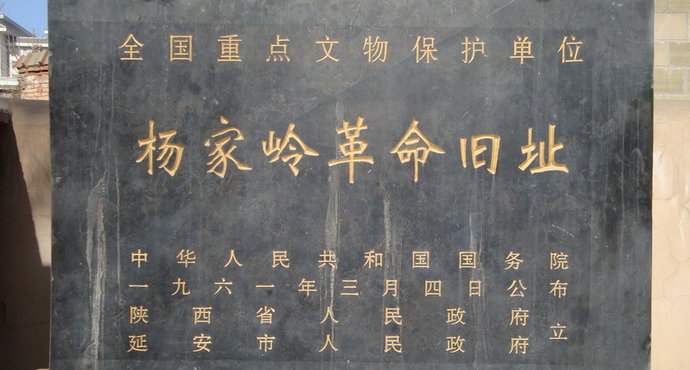 全国重点文物保护单位
杨家岭革命旧址
中华人民共和国国务院
一九六一年三月四日公布
陕西省人民政府
延安市人民政府立